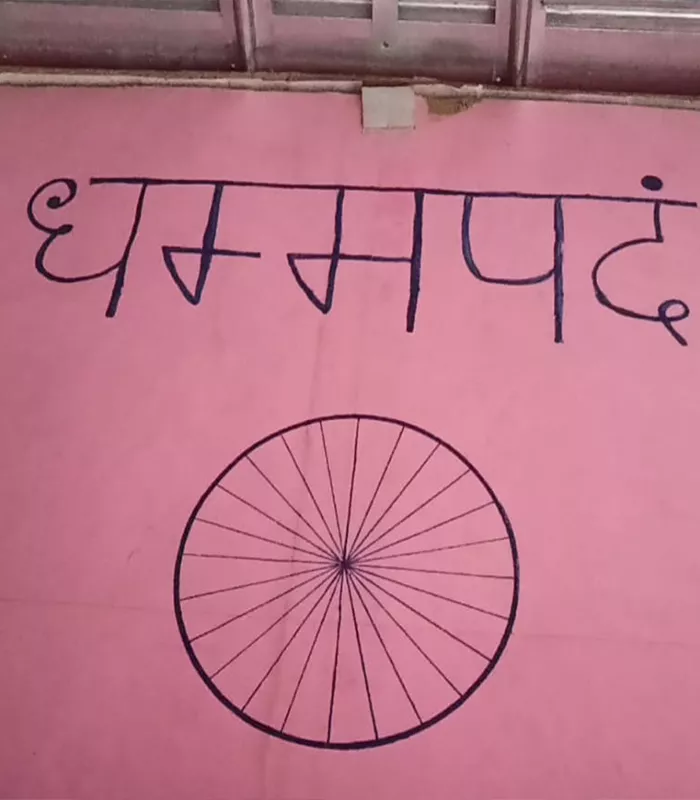 धम्मपदं